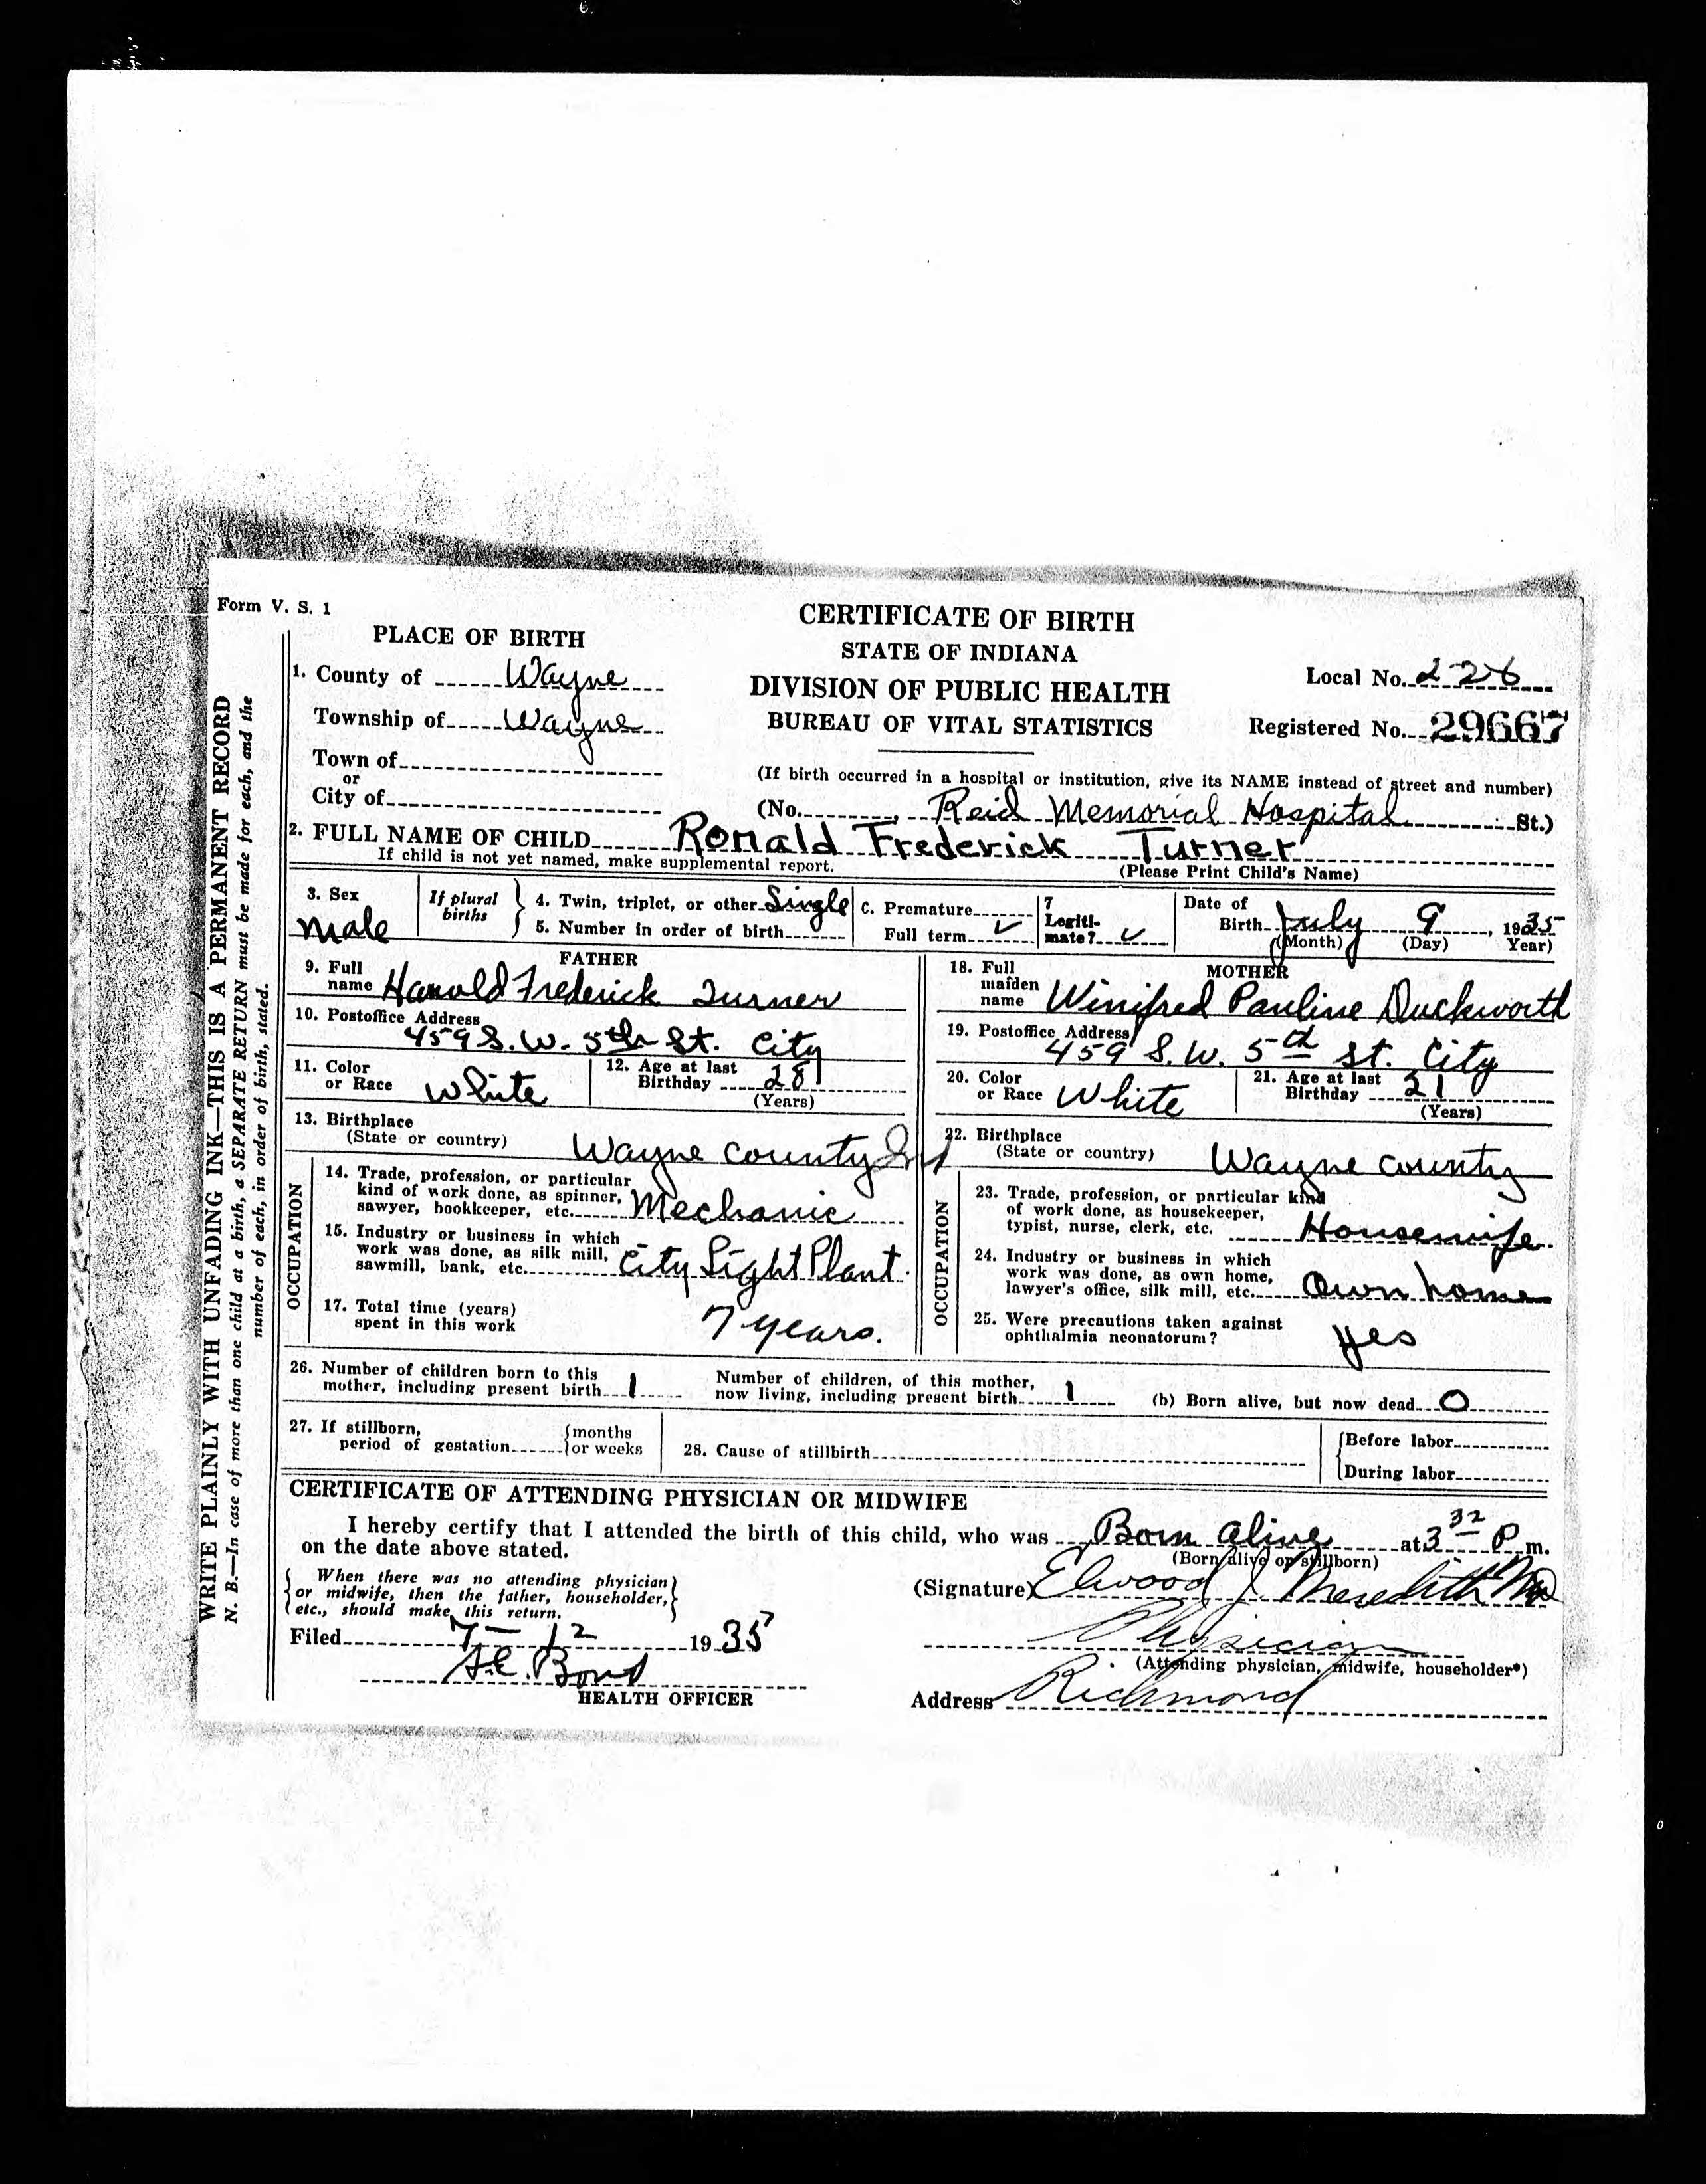 Form V. S. 1
WRITE PLAINLY WITH UNFADING INK—THIS IS A PERMANENT RECORD
N. B.—In case of more than one child at a birth, a SEPARATE RETURN must be made for each, and the
number of each, in order of birth, stated.
CERTIFICATE OF BIRTH
STATE OF INDIANA
DIVISION OF PUBLIC HEALTH
BUREAU OF VITAL STATISTICS
PLACE OF BIRTH
1. County of Wayne
Township of Wayne
Town of
or
City of
Local No. 226
Registered No. 29667
(If birth occurred in a hospital or institution, give its NAME instead of street and number)
(No. , Reid Memorial Hospital St.)
2. FULL NAME OF CHILD Ronald Frederick Turner
If child is not yet named, make supplemental report. (Please Print Child's Name)
3. Sex Male
If plural births
4. Twin, triplet, or other Single
5. Number in order of birth
C. Premature
Full term ✓
7 Legiti-
mate? ✓
Date of
Birth July 9, 1935
(Month) (Day) Year)
FATHER
9. Full
name Harold Frederick Turner
10. Postoffice Address
459 S. W. 5th St. City
11. Color
or Race White
12. Age at last
Birthday 28
(Years)
13. Birthplace
(State or country) Wayne County Ind
OCCUPATION
14. Trade, profession, or particular
kind of work done, as spinner,
sawyer, bookkeeper, etc. Mechanic
15. Industry or business in which
work was done, as silk mill,
sawmill, bank, etc. City Light Plant.
17. Total time (years)
spent in this work 7 years.
MOTHER
18. Full
maiden
name Winifred Pauline Duckworth
19. Postoffice Address
459 S. W. 5th St. City
20. Color
or Race White
21. Age at last
Birthday 21
(Years)
22. Birthplace
(State or country) Wayne County
OCCUPATION
23. Trade, profession, or particular kind
of work done, as housekeeper,
typist, nurse, clerk, etc. Housewife
24. Industry or business in which
work was done, as own home,
lawyer's office, silk mill, etc. Own home
25. Were precautions taken against
ophthalmia neonatorum? Yes
26. Number of children born to this
mother, including present birth 1
Number of children, of this mother,
now living, including present birth 1
(b) Born alive, but now dead 0
27. If stillborn,
period of gestation { months
or weeks
28. Cause of stillbirth
{ Before labor
During labor
CERTIFICATE OF ATTENDING PHYSICIAN OR MIDWIFE
I hereby certify that I attended the birth of this child, who was Born alive at 3 32 P m.
(Born alive or stillborn)
on the date above stated.
{ When there was no attending physician
or midwife, then the father, householder,
etc., should make this return. }
(Signature) Elwood J. Meredith MD
Physician
(Attending physician, midwife, householder*)
Filed 7-12 1935
A.E. Bond
HEALTH OFFICER
Address Richmond